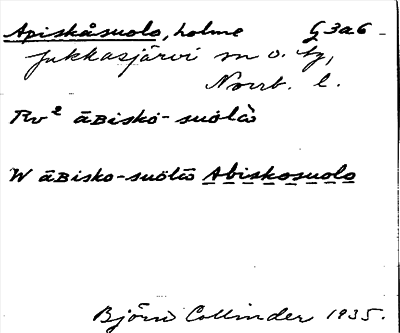 Apiskåsuolo, holme G3a6 -
Jukkasjärvi sn o. tg,
Norrb. l.
Rv² āʙiskȯ-suōlȯ
W āʙisko-suōlo Abiskosuolo
Björn Collinder 1935.